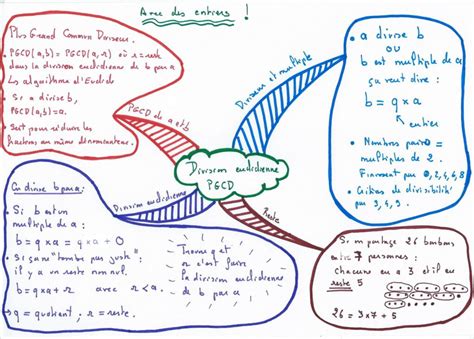 Avec des entiers !
Plus Grand Commun Diviseur.
• PGCD(a,b) = PGCD(a,r) où r = reste
dans la division euclidienne de b par a
Les algorithme d'Euclide
• Si a divise b,
PGCD(a,b) = a.
• Sert pour réduire les
fractions au même dénominateur.
PGCD de a et b
Diviseur et multiple
• a divise b
ou
b est multiple de a
ça veut dire :
b = q × a
entier
• Nombres pairs =
multiples de 2.
Finissent par 0, 2, 4, 6, 8
• Critères de divisibilité
par 3, 4, 9.
Division euclidienne
PGCD
Division euclidienne
On divise b par a :
• Si b est un
multiple de a :
b = q × a + 0
• Si ça ne "tombe pas juste" :
il y a un reste non nul.
b = q × a + r avec r < a.
→ q = quotient ; r = reste.
Trouver q et
r c'est faire
la division euclidienne
de b par a
Reste
Si on partage 26 bonbons
entre 7 personnes :
chacun en a 3 et il en
reste 5
26 = 3 × 7 + 5